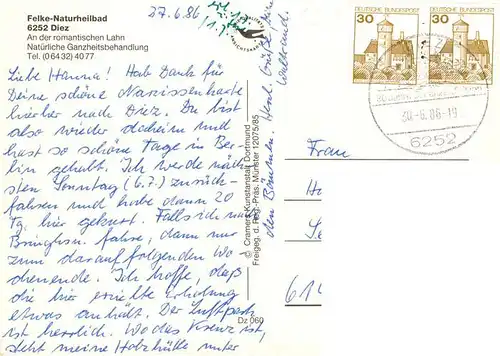 Felke-Naturheilbad
6252 Diez
An der romantischen Lahn
Natürliche Ganzheitsbehandlung
Tel. (0 64 32) 40 77
27.6.86
Liebe Hanna! Hab Dank für
Deine schöne Narzissenkarte
hierher nach Diez. Du bist
also wieder daheim und
hast so schöne Tage in Ber-
lin gehabt. Ich werde näch-
sten Sonntag (6.7.) zurück-
fahren und habe dann 20
Tg. hier gekurt. Falls ich nach
fahre, dann nur
zum darauffolgenden Wo-
chenende. Ich hoffe, daß
die hier erzielte Erholung
etwas anhält. Der Luftpark
ist herrlich. Wo das Kreuz ist,
steht meine Holzhütte unter
den Bäumen. Herzl. Grüße Deine
Waltraud.
© Cramers Kunstanstalt Dortmund
Freigeg. d. Reg.-Präs. Münster 12075/85
Dz 060
DEUTSCHE BUNDESPOST
30
DEUTSCHE BUNDESPOST
30
30.-6.86-19
6252
Frau
H
61